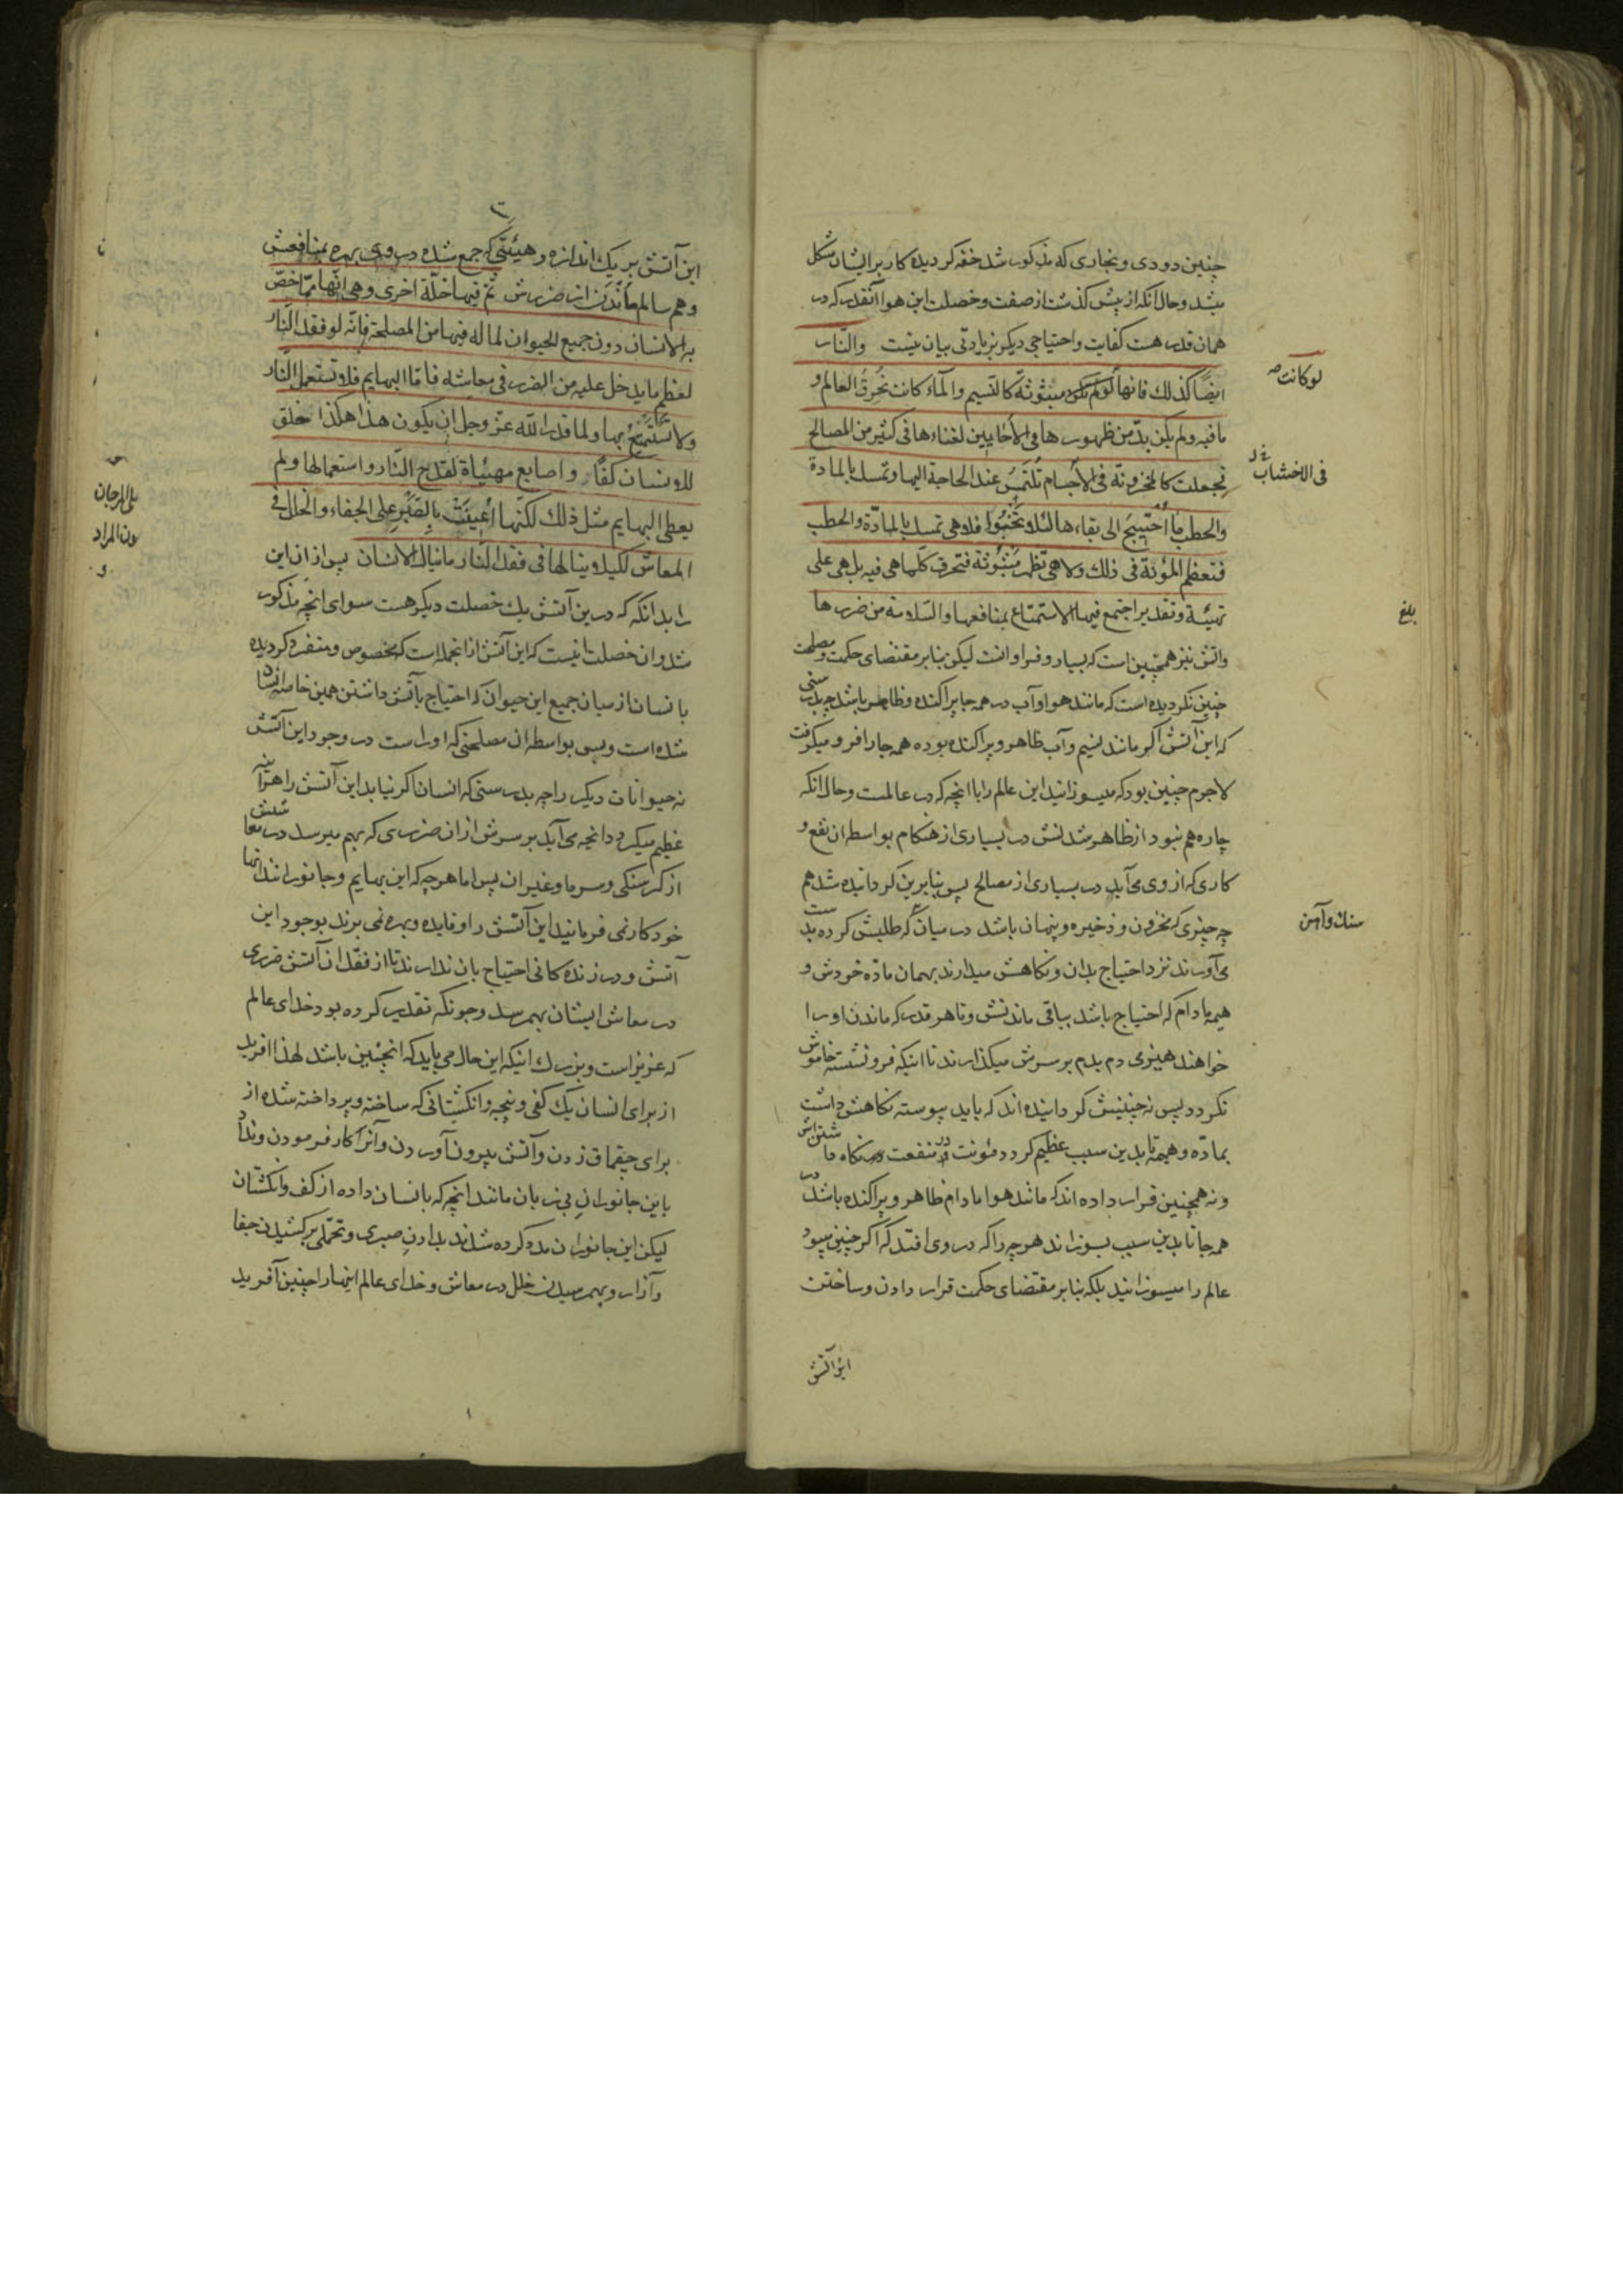 چنین دودی و بخاری که مذکور شد خفه کردیده کار بر ایشان مشکل
میشد و حال آنکه از پیش کذشت از صفت و خصلت این هوا آنقدر که در
همان قدر هست کفایت و احتیاجی دیکر بزیادتی بیان نیست والنّار
ایضًا کذلك فانها لو لم تکن مبثوثة کالنسیم والمآء کانت تُحرقُ العالم و
لو کانت
ما فیه ولم یکن بدّ من ظهورها فی الأحایین لغناءها فی کثیر من المصالح
فجعلت کالمخزونة فی الأجسام تُلتَمَسُ عند الحاجة الیها و تمسك بالمادة
فی الاخشاب
والحطب ما اُحتِیجَ الی بقاءها لئلا تخبُوا فلا هی تمسك بالمادّة والحطب
فتعظم المؤنة فی ذلك ولا هی تظهر مَبثُوثة فتحرق کلّما هی فیه بل هی علی
تهیئة و تقدیر اجتمع فیها الاستمتاع بمنافعها والسّلامة من ضررها
بلغ
واتش نیز همچنین است که بسیار و فراوانست لیکن بنابر مقتضای حکمت و مصلحت
چنین نکردیده است که مانند هوا و آب در همه جا پراکنده و ظاهر باشد چه بدرستی
که این آتش اکر مانند نسیم و آب ظاهر و پراکنده بوده همه جا را فرو میکرفت
لاجرم چنین بود که میسوزانید این عالم را با انچه که در عالمست و حال انکه
چاره هم نبود از ظاهر شدنش در بسیاری از هنکام بواسطه ان نفع و
کاری که از وی می آید در بسیاری از مصالح پس بنابرین کردانیده شد هم
چه چیزی که مخزون و ذخیره و پنهان باشد در میان که طلبش کرده بدست
سنك و آهن
می آورند نزد احتیاج بدان و نکاهش میدارند بهمان مادّه خودش و
هیمه مادام که احتیاج باشد بباقی ماندنش و تا هر قدر که ماندن او را
خواهند هیزمی دم بدم بر سرش میکذارند تا اینکه فرو نشسته خاموش
نکردد پس نه چنینش کردانیده اند که باید پیوسته نکاهش داشت
بمادّه و هیمه تا بدین سبب عظیم کردد مؤنت در نکاه داشتن آتش
و نه همچنین قرار داده اند که مانند هوا مادام ظاهر و پراکنده باشد در
همه جا تا بدین سبب بسوزاند هر چه را که در وی افتد که اکر چنین میبود
عالم را میسوزانید بلکه بنابر مقتضای حکمت قرار دادن و ساختن
این آتش
این آتش بر یك اندازه و هیئتی که جمع شده در وی بهره بمنافعش
و هم سالم ماندن از ضررش ثمّ فیها خلّة اخری و هی انّها ممّا خصّ
به الانسان دون جمیع الحیوان لما له فیها من المصلحة فانّه لو فقد النّار
لعظم ما یدخل علیه من الضرر فی معاشه فامّا البهایم فلا تستعمل النّار
ولا تستمتع بها ولما قدر الله عزّ وجل ان یکون هذا هکذا خلق
للانسان کفًّا و اصابع مهیّأة لقدح النّار و استعمالها ولم
یعطی البهایم مثل ذلك لکنّها اُعینَتْ بالصَّبرِ علی الجفاء والخلل فی
المعاش لکیلا ینالها فی فقد النار ما ینال الانسان پس از ان این
را بدانکه که درین آتش یك خصلت دیکر هست سوای انچه مذکور
شد و ان خصلت اینست که این آتش از انجمله است که مخصوص و منفرد کردیده
بانسان از میان جمیع این حیوان که احتیاج بآتش داشتن همین خاصه انسان
شده است و بس بواسطه ان مصلحتی که او راست در وجود این آتش
نه حیوانات دیکر را چه بدرستی که انسان اکر نیابد این آتش را هر آینه
عظیم میکردد انچه می آید بر سرش از ان ضرری که بهم میرسد در معاشش
از کرسنکی و سرما و غیر ان پس اما هر چه که این بهایم و جانوراند آنها
خود کار نمی فرمانید این آتش را و فایده و بهره نمی برند بوجود این
آتش و در زنده کانی احتیاج بان ندارند تا از فقد ان آتش ضرری
در معاش ایشان بهم رسد و چونکه تقدیر کرده بود خدای عالم
که عزیز است و بزرك اینکه این حال می باید که انچنین باشد لهذا افرید
از برای انسان یك کفی و پنجه و انکشتانی که ساخته و پرداخته شده از
برای چقماق زدن و آتش بیرون آوردن و آنرا کار فرمودن و نداد
باین جانوران بی زبان مانند انچه که بانسان داده از کف و انکشتان
لیکن این جانوران مدد کرده شدند بدادن صبری و تحمّلی بر کشیدن جفا
و آزار و بهم رسیدن خلل در معاش و خدای عالم اینها را چنین آفرید